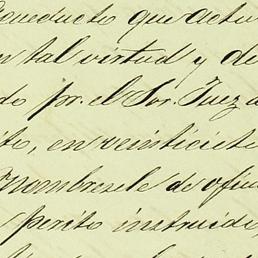 conducto que actu
en tal virtud y de
do por el Sor. Juez d
ito, en veintisiete
Nombresele de ofici
perito instruido